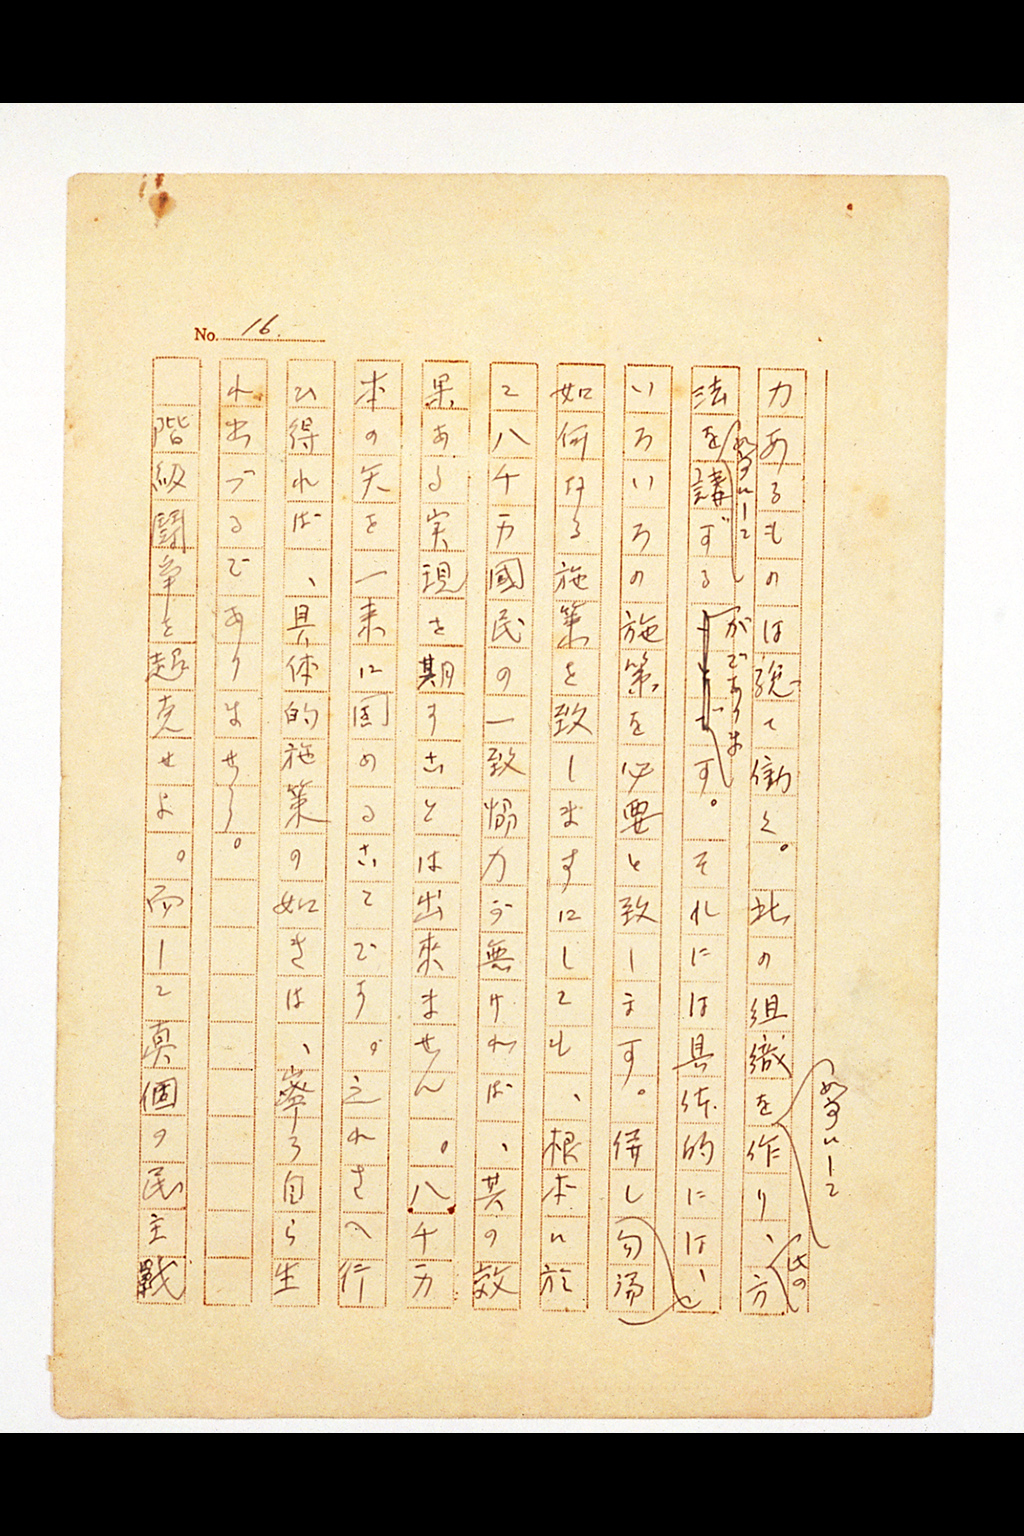 No. 16.
力あるものは総て働く。此の組織を作り、方
法を講ずることがです。それには具体的には、
がであります
いろいろの施策を必要と致します。併し勿論
如何なる施策を致しますにしても、根本に於
て八千万國民の一致協力が無ければ、其の效
果ある実現を期することは出來ません。八千万
本の矢を一束に固めることです。之れさへ行
ひ得れば、具体的施策の如きは、寧ろ自ら生
れ出づるでありませう。
階級闘争を超克せよ。而して真個の民主戰